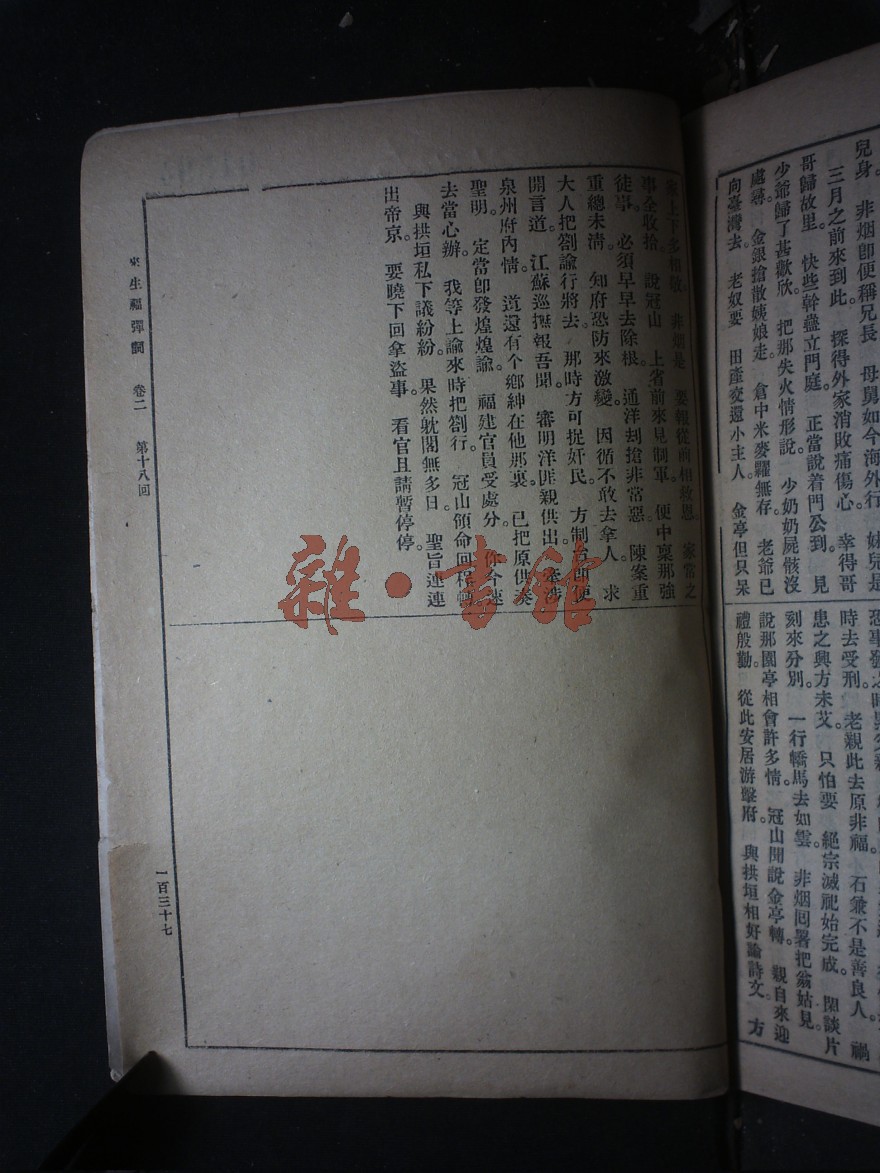 兒身。 非烟卽便稱兄長 母舅如今海外行 妹兒是
三月之前來到此。 探得外家消敗痛傷心。 幸得哥
哥歸故里。 快些幹蠱立門庭。 正當說着門公到。 見
少爺歸了甚歡欣。 把那失火情形說 少奶奶屍骸沒
處尋。 金銀搶散姨娘走。 倉中米麥糶無存。 老爺已
向臺灣去。 老奴要 田產交還小主人。 金亭但只呆
時去受刑。 老親此去原非福。 石兼不是善良人。 禍
患之興方未艾。 只怕要 絕宗滅祀始完成。 閑談片
刻來分別。 一行轎馬去如雲。 非烟囘署把翁姑見。
說那園亭相會許多情。 冠山聞說金亭轉。 親自來迎
禮殷勤。 從此安居游擊府。 與拱垣相好論詩文。 方
家上下多相敬。 非烟是 要報從前相救恩。 家常之
事全收拾。 說冠山 上省前來見制軍。 便中稟那強
徒事。 必須早早去除根。 通洋刦搶非常惡。 陳案重
重總未淸。 知府恐防來激變。 因循不敢去拿人。 求
大人把劄諭行將去。 那時方可捉奸民。 方制台聞便
開言道。 江蘇巡撫報吾聞。 審明洋匪親供出。 牽涉
泉州府內情。 道還有个鄉紳在他那裏。 已把原供奏
聖明。 定當卽發煌煌諭。 福建官員受處分。 你今速
去當心辦。 我等上諭來時把劄行。 冠山領命回程轉。
與拱垣私下議紛紛。 果然躭閣無多日。 聖旨連連
出帝京。 要曉下回拿盜事。 看官且請暫停停。
來生福彈詞 卷二 第十八回
一百三十七
雜·書館